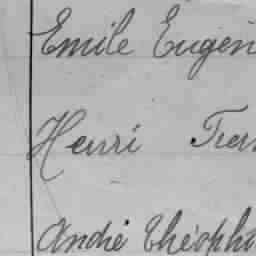 Emile Eugèn
Henri
André Théophi